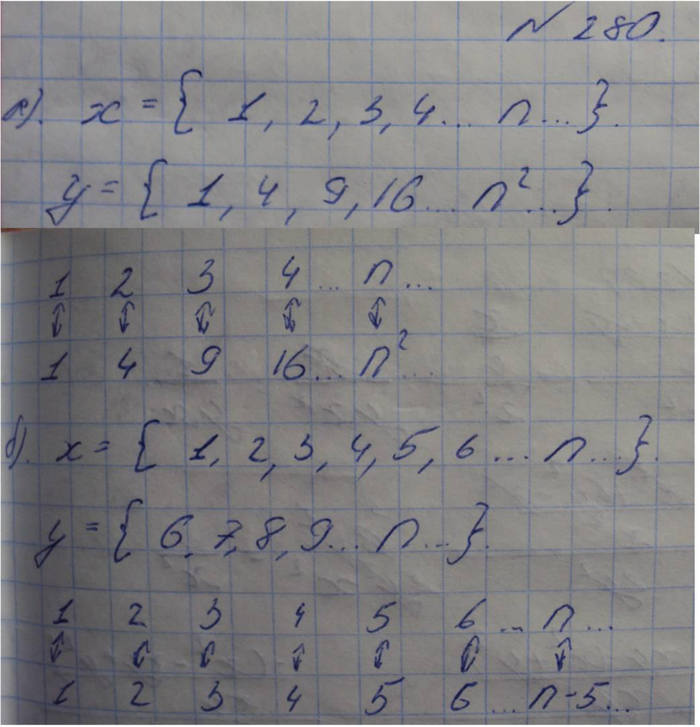 № 280.
а). x = { 1, 2, 3, 4... n...}.
y = { 1, 4, 9, 16... n²...}.
1 2 3 4... n...
↕ ↕ ↕ ↕ ↕
1 4 9 16... n²...
б). x = { 1, 2, 3, 4, 5, 6... n...}.
y = { 6, 7, 8, 9... n...}.
1 2 3 4 5 6... n...
↕ ↕ ↕ ↕ ↕ ↕ ↕
1 2 3 4 5 6... n-5...